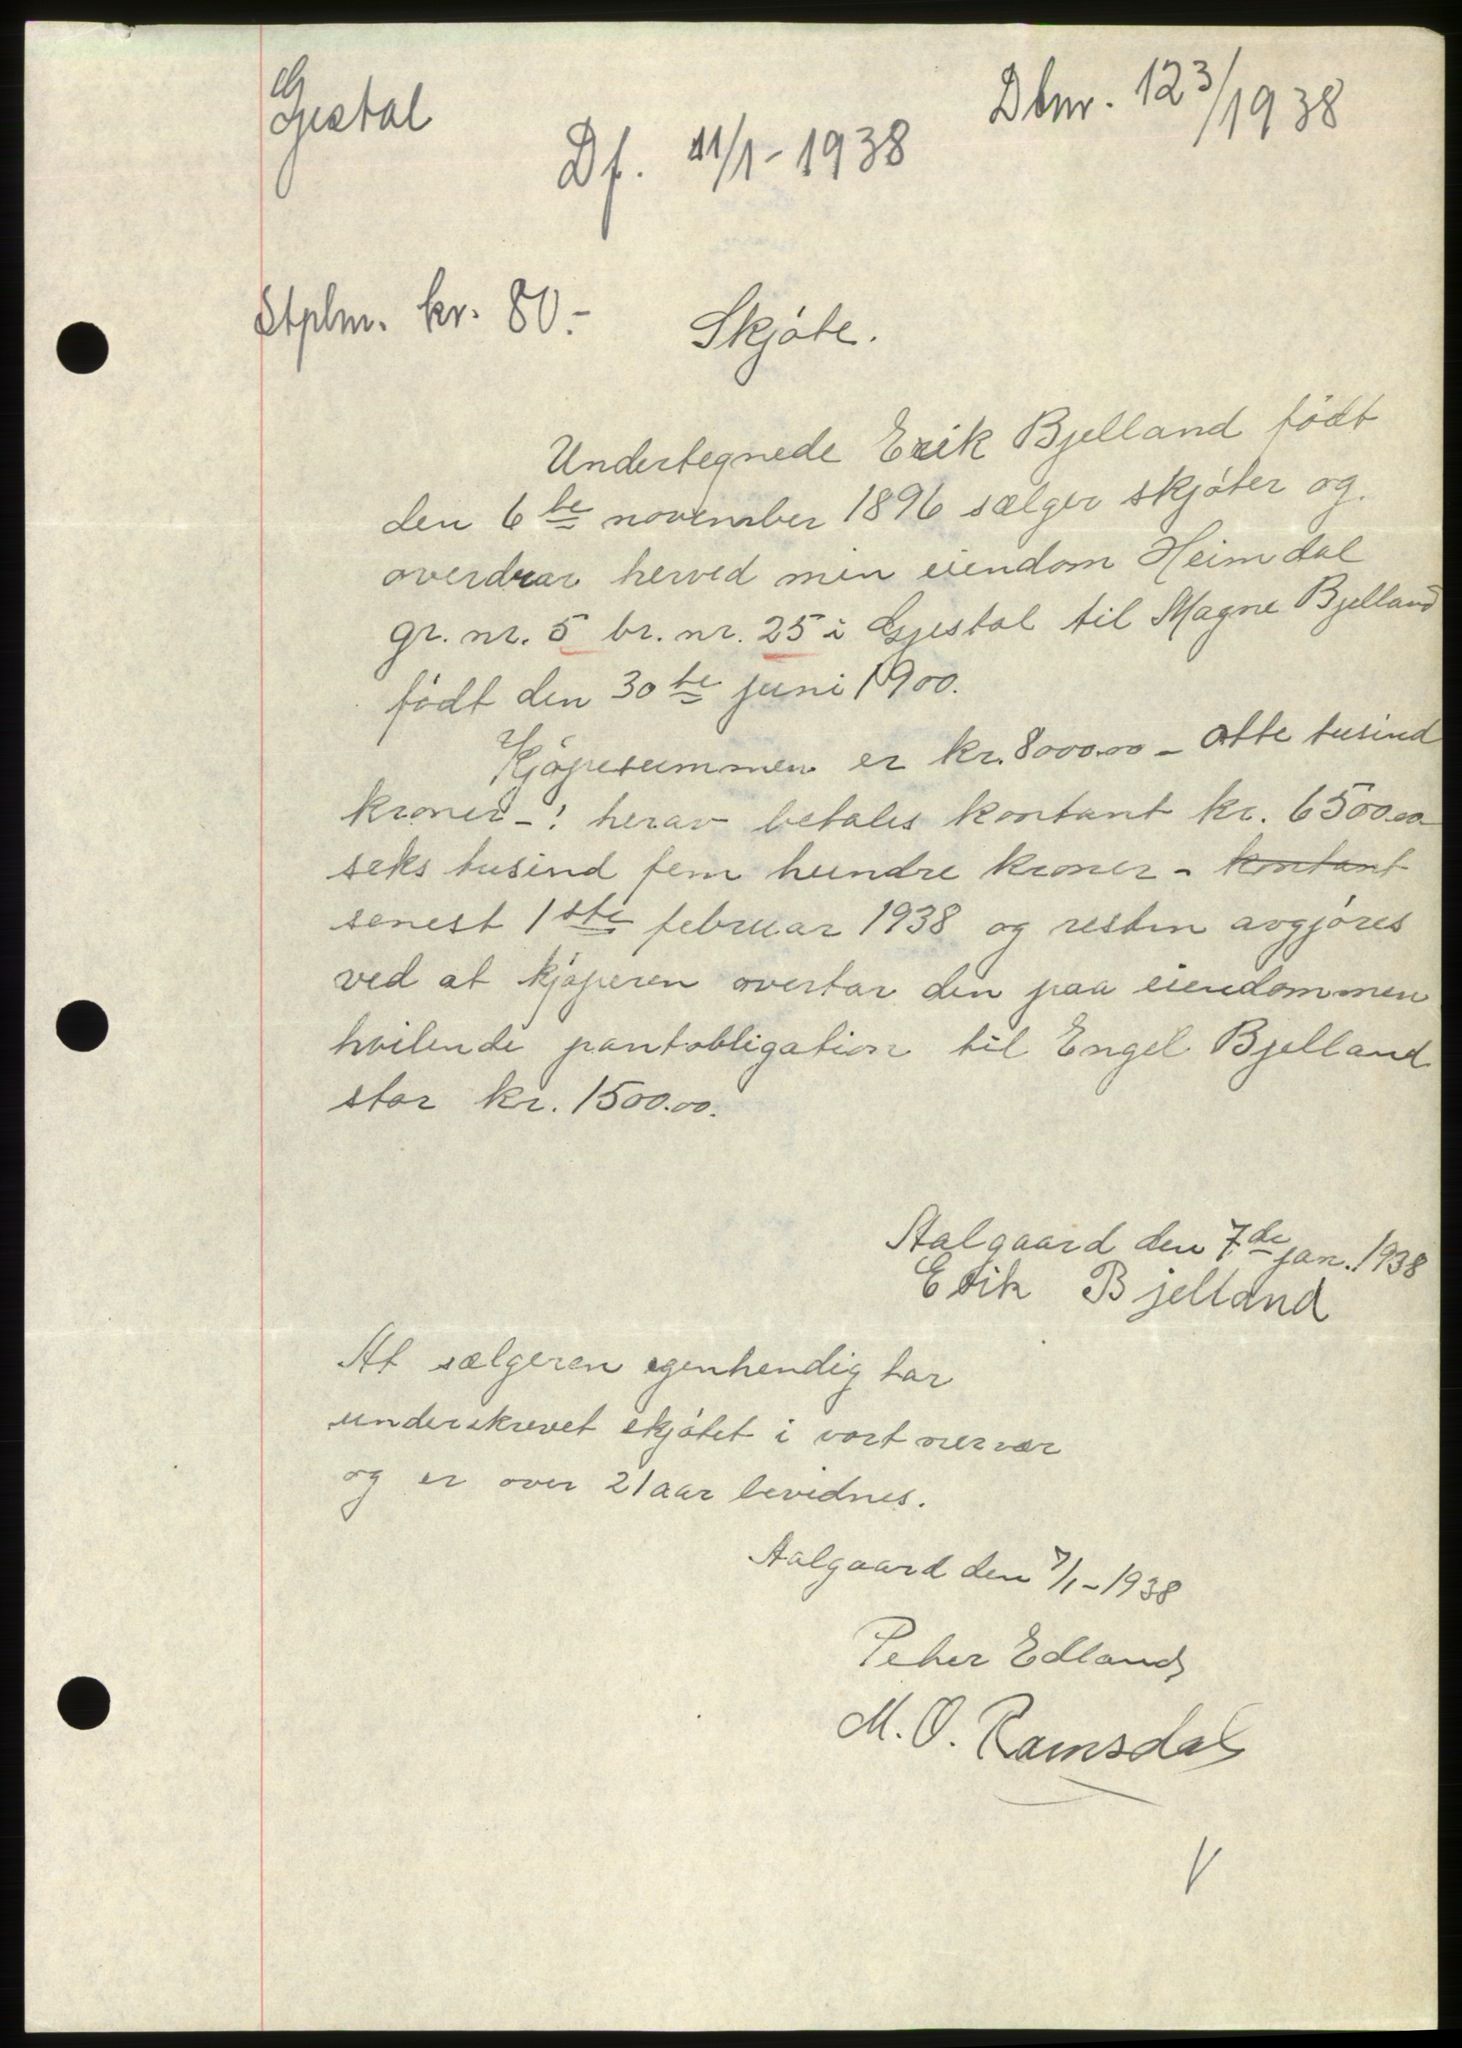 Gjestal
Dbnr. 123/1938
Df. 11/1-1938
Stplm. kr. 80.-
Skjøte.
Undertegnede Erik Bjelland født
den 6te november 1896 sælger skjøter og
overdrar herved min eiendom Heimdal
gr. nr. 5 br. nr. 25 i Gjestal til Magne Bjelland
født den 30te juni 1900.
Kjøpesummen er kr. 8000.00 - otte tusind
kroner -! herav betales kontant kr. 6500.00
seks tusind fem hundre kroner - kontant
senest 1ste februar 1938 og resten avgjøres
ved at kjøperen overtar den paa eiendommen
hvilende pantobligation til Engel Bjelland
stor kr. 1500.00.
Aalgaard den 7de jan. 1938
Erik Bjelland
At sælgeren egenhendig har
underskrevet skjøtet i vort nervær
og er over 21 aar bevidnes.
Aalgaard den 7/1-1938
Peder Edland
M. O. Ramsdal